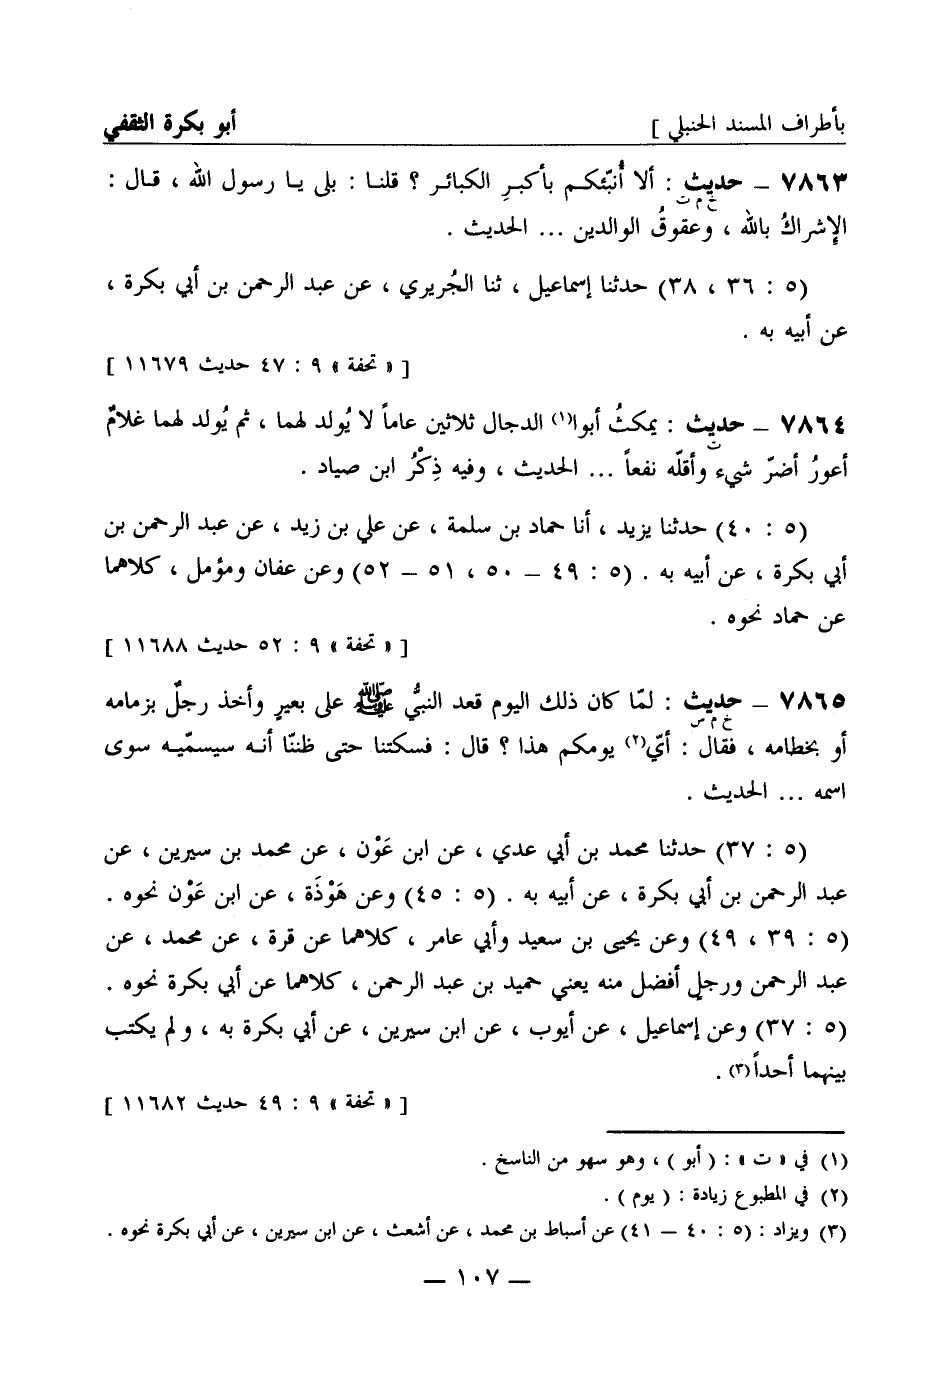 بأطراف المسند الحنبلي ] أبو بكرة الثقفي
٧٨٦٣ – حديث : ألا أُنبّئكم بأكبرِ الكبائر ؟ قلنا : بلى يا رسول الله ، قال :
خ م ت
الإشراكُ بالله ، وعقوقُ الوالدين ... الحديث .
(٥ : ٣٦ ، ٣٨) حدثنا إسماعيل ، ثنا الجُريري ، عن عبد الرحمن بن أبي بكرة ،
عن أبيه به .
[ « تحفة » ٩ : ٤٧ حديث ١١٦٧٩ ]
٧٨٦٤ – حديث : يمكثُ أبوا(١) الدجال ثلاثين عاماً لا يُولد لهما ، ثم يُولد لهما غلامٌ
ت
أعورُ أضرّ شيء وأقلّه نفعاً ... الحديث ، وفيه ذِكْرُ ابن صياد .
(٥ : ٤٠) حدثنا يزيد ، أنا حماد بن سلمة ، عن علي بن زيد ، عن عبد الرحمن بن
أبي بكرة ، عن أبيه به . (٥ : ٤٩ – ٥٠ ، ٥١ – ٥٢) وعن عفان ومؤمل ، كلاهما
عن حماد نحوه .
[ « تحفة » ٩ : ٥٢ حديث ١١٦٨٨ ]
٧٨٦٥ – حديث : لمّا كان ذلك اليوم قعد النبيُّ ﷺ على بعيرٍ وأخذ رجلٌ بزمامه
خ م س
أو بخطامه ، فقال : أيّ(٢) يومكم هذا ؟ قال : فسكتنا حتى ظننّا أنه سيسمّيه سوى
اسمه ... الحديث .
(٥ : ٣٧) حدثنا محمد بن أبي عدي ، عن ابن عَوْن ، عن محمد بن سيرين ، عن
عبد الرحمن بن أبي بكرة ، عن أبيه به . (٥ : ٤٥) وعن هَوْذَة ، عن ابن عَوْن نحوه .
(٥ : ٣٩ ، ٤٩) وعن يحيى بن سعيد وأبي عامر ، كلاهما عن قرة ، عن محمد ، عن
عبد الرحمن ورجلٍ أفضل منه يعني حميد بن عبد الرحمن ، كلاهما عن أبي بكرة نحوه .
(٥ : ٣٧) وعن إسماعيل ، عن أيوب ، عن ابن سيرين ، عن أبي بكرة به ، ولم يكتب
بينهما أحداً(٣) .
[ « تحفة » ٩ : ٤٩ حديث ١١٦٨٢ ]
(١) في « ت » : ( أبو ) ، وهو سهو من الناسخ .
(٢) في المطبوع زيادة : ( يوم ) .
(٣) ويزاد : (٥ : ٤٠ – ٤١) عن أسباط بن محمد ، عن أشعث ، عن ابن سيرين ، عن أبي بكرة نحوه .
– ١٠٧ –